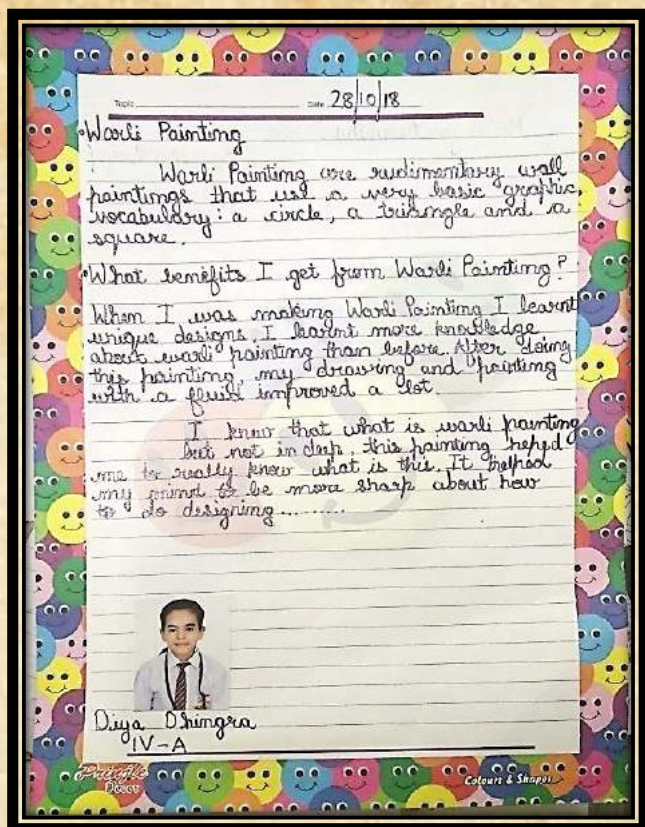 Topic Date 28/10/18
•Warli Painting
Warli Painting are rudimentary wall
paintings that use a very basic graphic
vocabulary: a circle, a triangle and a
square.
•What benefits I get from Warli Painting?
When I was making Warli Painting I learnt
unique designs, I learnt more knowledge
about warli painting than before. After doing
this painting, my drawing and painting
with a fluid improved a lot.
I knew that what is warli painting
but not in deep, this painting heped
me to really know what is this. It helped
my mind to be more sharp about how
to do designing.........
Diya Dhingra
IV-A
Pringle
Decor
Colours & Shapes